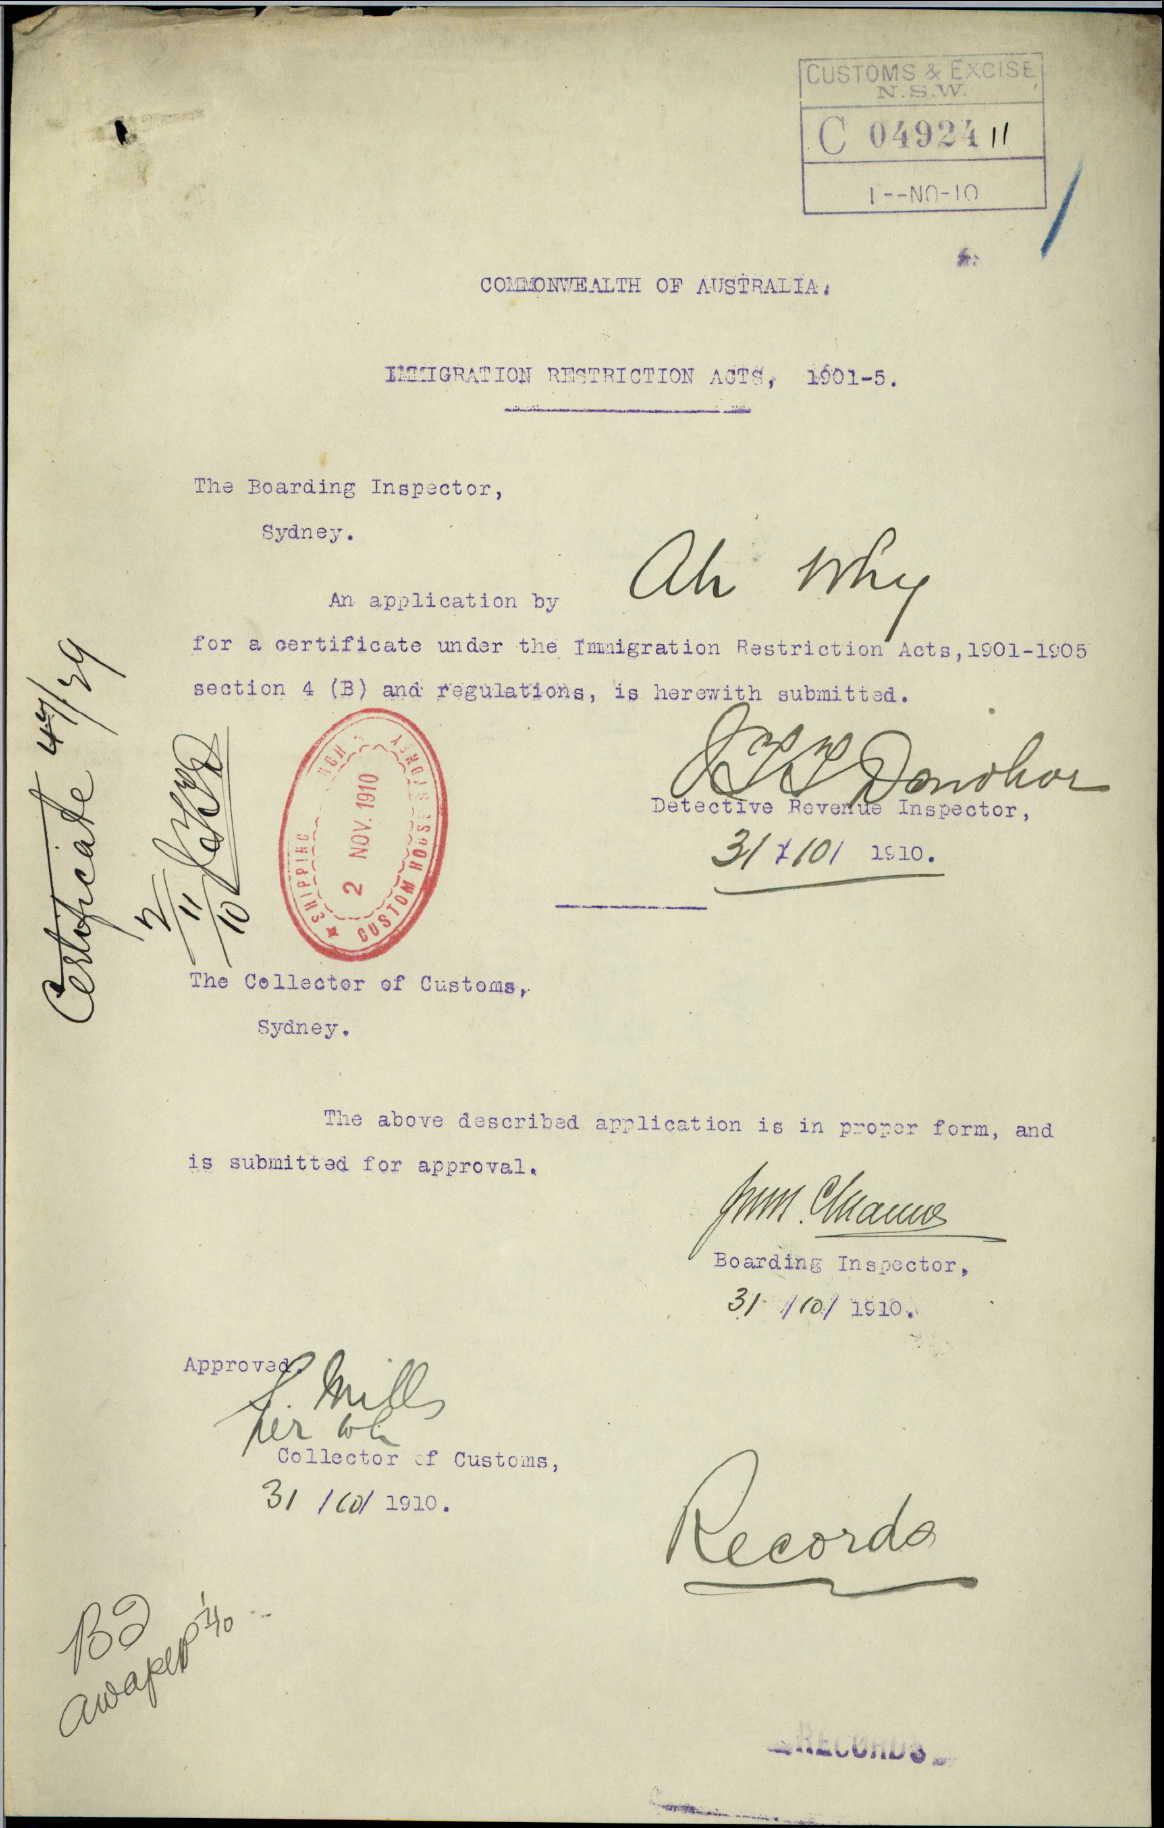 CUSTOMS & EXCISE
N.S.W.
C 04924 11
1--NO-10
COMMONWEALTH OF AUSTRALIA.
IMMIGRATION RESTRICTION ACTS, 1901-5.
The Boarding Inspector,
Sydney.
An application by Ah Why
for a certificate under the Immigration Restriction Acts,1901-1905
section 4 (B) and regulations, is herewith submitted.
Donohoe
Detective Revenue Inspector,
31/10/ 1910.
Certificate 47/29
2/11/10
SHIPPING
2 NOV. 1910
CUSTOM HOUSE SYDNEY
The Collector of Customs,
Sydney.
The above described application is in proper form, and
is submitted for approval.
Boarding Inspector,
31 /10/ 1910.
Approved.
Mills
per
Collector of Customs,
31 /10/ 1910.
Records
RECORDS